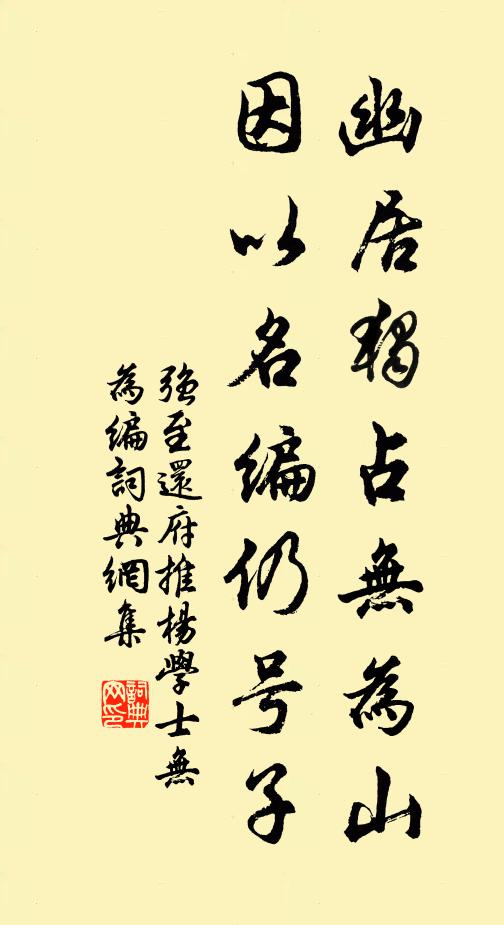 幽居獨占無為山
因以名編仍号子
強至還府推楊學士無
為編詞典網集
詞典网印